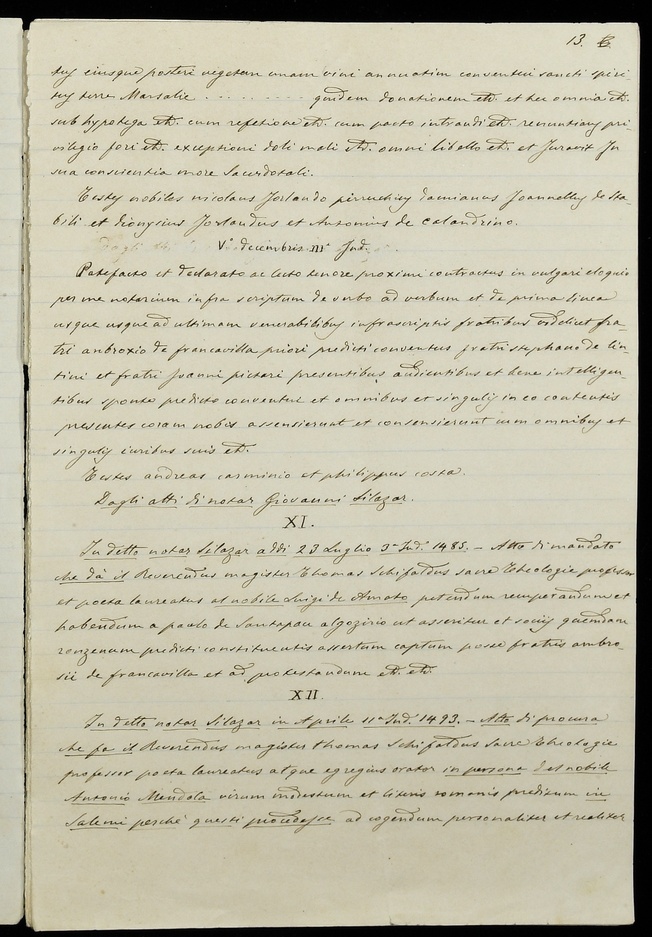 13.
tuy eiusque posteri vegetem unam vini annuatim conventui sancti spiri-
tuy terre Marsalie . . . . . . . . . . quidem donationem etc. et hec omnia etc.
sub hypotega etc. cum refetione etc. cum pacto intrandi etc. renuntiany pri-
vilegio fori etc. exceptioni doli mali etc. omni libello etc. et Juravit In
sua conscientia more Sacerdotali.
Testes nobiles nicolaus Jorlando pirruchiuy damianus Joannelluy de Sta-
bili et dionysius Jorlandus et Antonius de Calandrino.
V.° decembris III.e Ind.
Patefacto et declarato ac lecto tenore proximi contractus in vulgari eloquio
per me notarium infra scriptum de verbo ad verbum et de prima linea
usque usque ad ultimam venerabilibuy infrascriptis fratribus videlicet fra-
tri anbroxio de francavilla priori predicti conventus fratri stephano de lin-
tini et fratri Joanni pictari presentibus audientibus et bene intelligen-
tibus sponte predicto conventui et omnibus et singuliy in eo contentis
presentes coram nobis assensierunt et consensierunt cum omnibuy et
singuliy iuribus suis etc.
Testes andreas carminio et philippus costa.
Dagli atti di notar Giovanni Silazar.
XI.
In detto notar Silazar addì 23 Luglio 3.a Ind.e 1485. – Atto di mandato
che dà il Reverendus magister Thomas Schifaldus sacre Theologie professor
et poeta laureatus al nobile Luigi de Amato petendum recuperandum et
habendum a paulo de Santapau algozirio ut asseritur et sociiy quendam
ronzenum predicti constituentis assertum captum posse fratris ambro-
sii de francavilla et ad protestandum etc. etc.
XII.
In detto notar Silazar in Aprile 11.a Ind.e 1493. – Atto di procura
che fa il Reverendus magister thomas Schifaldus Sacre Theologie
professor poeta laureatus atque egregius orator in persona del nobile
Antonio Mendola virum modestum et literis romanis preditum in
Salemi perchè questi procedesse ad cogendum personaliter et realiter